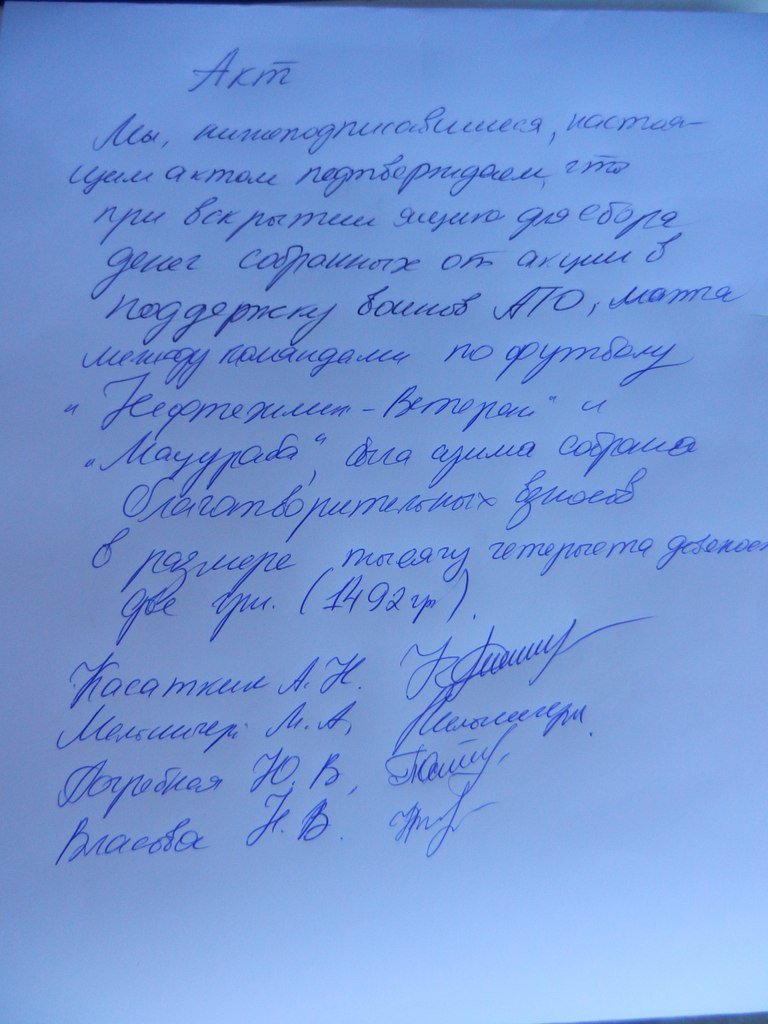 Акт
Мы, нижеподписавшиеся, настоя-
щим актом подтверждаем, что
при вскрытии ящика для сбора
денег собранных от акции в
поддержку воинов АТО, матча
между командами по футболу
"Нефтехимик-Ветеран" и
"Мацураба", была сумма собрана
благотворительных взносов
в размере тысячу четыреста девяност
две грн. (1492 гр)
Касаткин А.Н.
М.А.
Погребная Ю.В,
Власова Н.В.